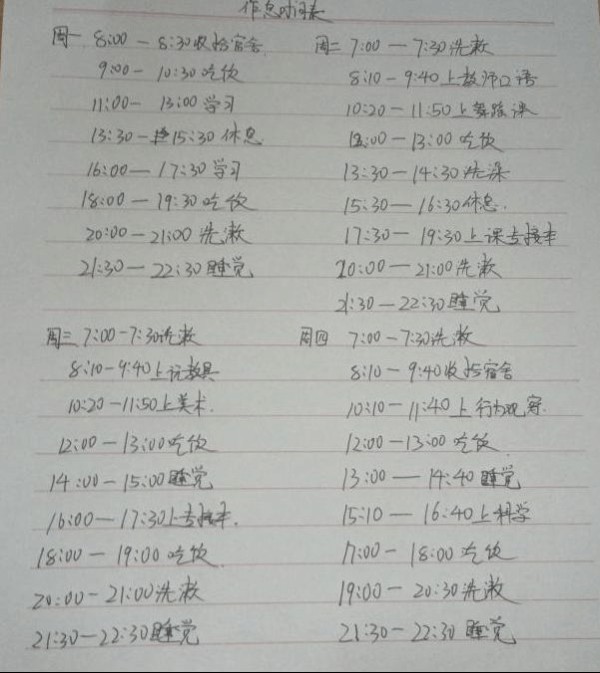 作息时间表
周一 8:00-8:30收拾宿舍
9:00-10:30吃饭
11:00-13:00学习
13:30-15:30休息
16:00-17:30学习
18:00-19:30吃饭
20:00-21:00洗漱
21:30-22:30睡觉
周二 7:00-7:30洗漱
8:10-9:40上教师口语
10:20-11:50上舞蹈课
12:00-13:00吃饭
13:30-14:30洗澡
15:30-16:30休息.
17:30-19:30上课专接本
20:00-21:00洗漱
21:30-22:30睡觉
周三 7:00-7:30洗漱
8:10-9:40上玩教具
10:20-11:50上美术.
12:00-13:00吃饭
14:00-15:00睡觉
16:00-17:30上专接本.
18:00-19:00吃饭
20:00-21:00洗漱
21:30-22:30睡觉
周四 7:00-7:30洗漱
8:10-9:40收拾宿舍
10:10-11:40上行为观察.
12:00-13:00吃饭
13:00-14:40睡觉
15:10-16:40上科学
17:00-18:00吃饭
19:00-20:30洗漱
21:30-22:30睡觉